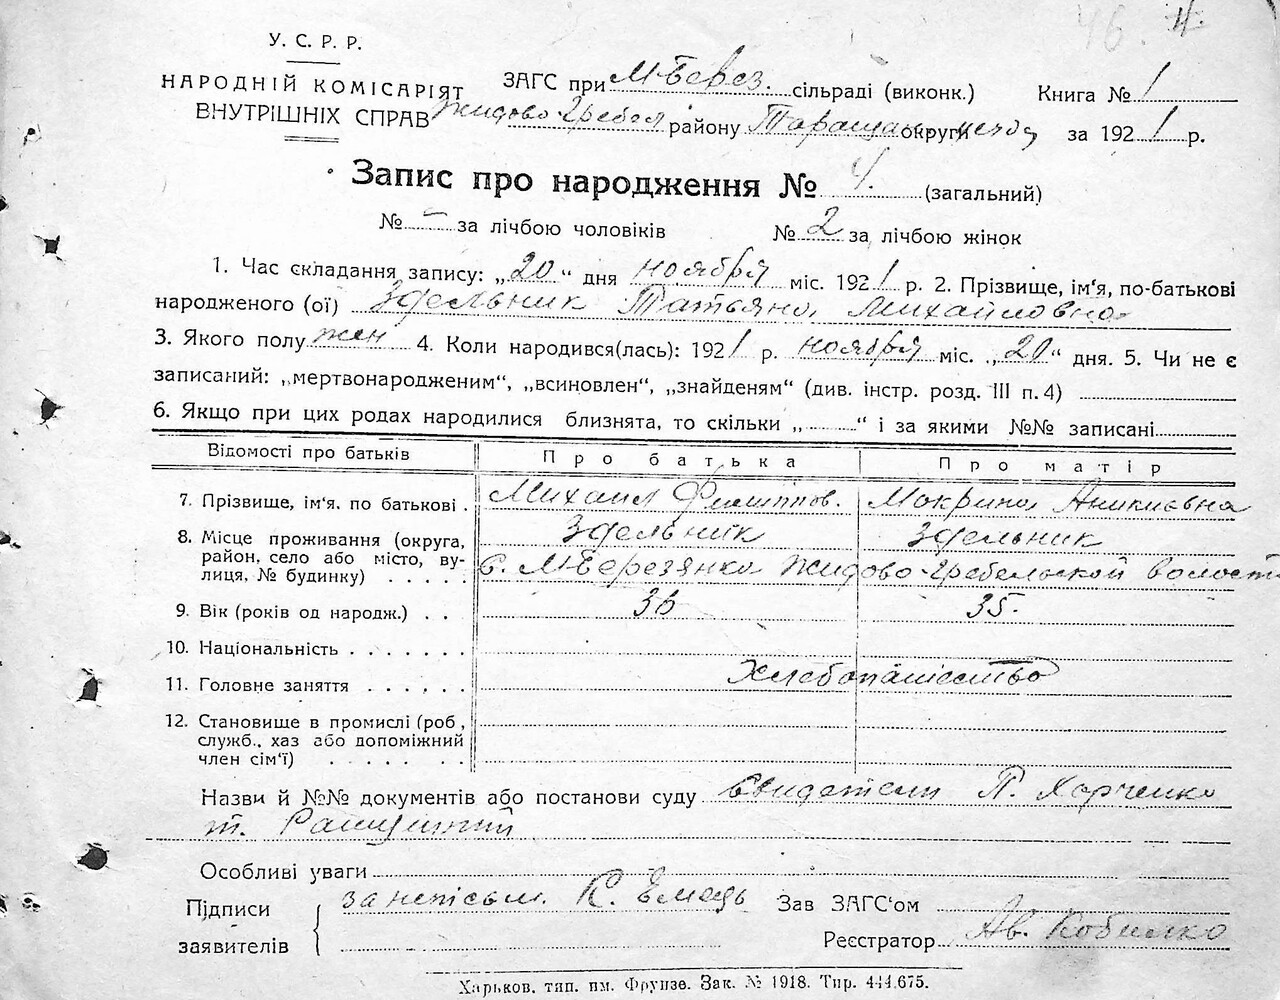 46. 4.
У. С. Р. Р.
НАРОДНІЙ КОМІСАРІЯТ ЗАГС при М-Берез. сільраді (виконк.) Книга № 1
ВНУТРІШНІХ СПРАВ Жидово-Гребел району Таращан округи за 1921 р.
Запис про народження № 4. (загальний)
№ – за лічбою чоловіків № 2 за лічбою жінок
1. Час складання запису: „20“ дня ноября міс. 1921 р. 2. Прізвище, ім‘я, по-батькові
народженого (ої) Здельник Татьяна Михайловна
3. Якого полу жен 4. Коли народився(лась): 1921 р. ноября міс. „20“ дня. 5. Чи не є
записаний: „мертвонародженим“, „всиновлен“, „знайденям“ (див. інстр. розд. III п. 4)
6. Якщо при цих родах народилися близнята, то скільки „ “ і за якими №№ записані
Відомості про батьків Про батька Про матір
7. Прізвище, ім‘я, по батькові . Михаил Филиппов. Мокрина Аникиевна
Здельник Здельник
8. Місце проживання (округа,
район, село або місто, ву-
лиця, № будинку) . . . . с. М-Березянка Жидово-Гребельской волости
9. Вік (років од народж.) . . 36 35.
10. Національність . . . . . . .
11. Головне заняття . . . . . . Хлебопашество
12. Становище в промислі (роб.,
служб., хаз або допоміжний
член сім‘ї) . . . . .
Назви й №№ документів або постанови суду Свидетели П. Харченко
т.
Особливі уваги
Підписи К. Емець Зав ЗАГС‘ом
заявителів Реєстратор Ав. Кобилко
Харьков. тип. ім. Фрунзе. Зак. № 1918. Тир. 444.675.